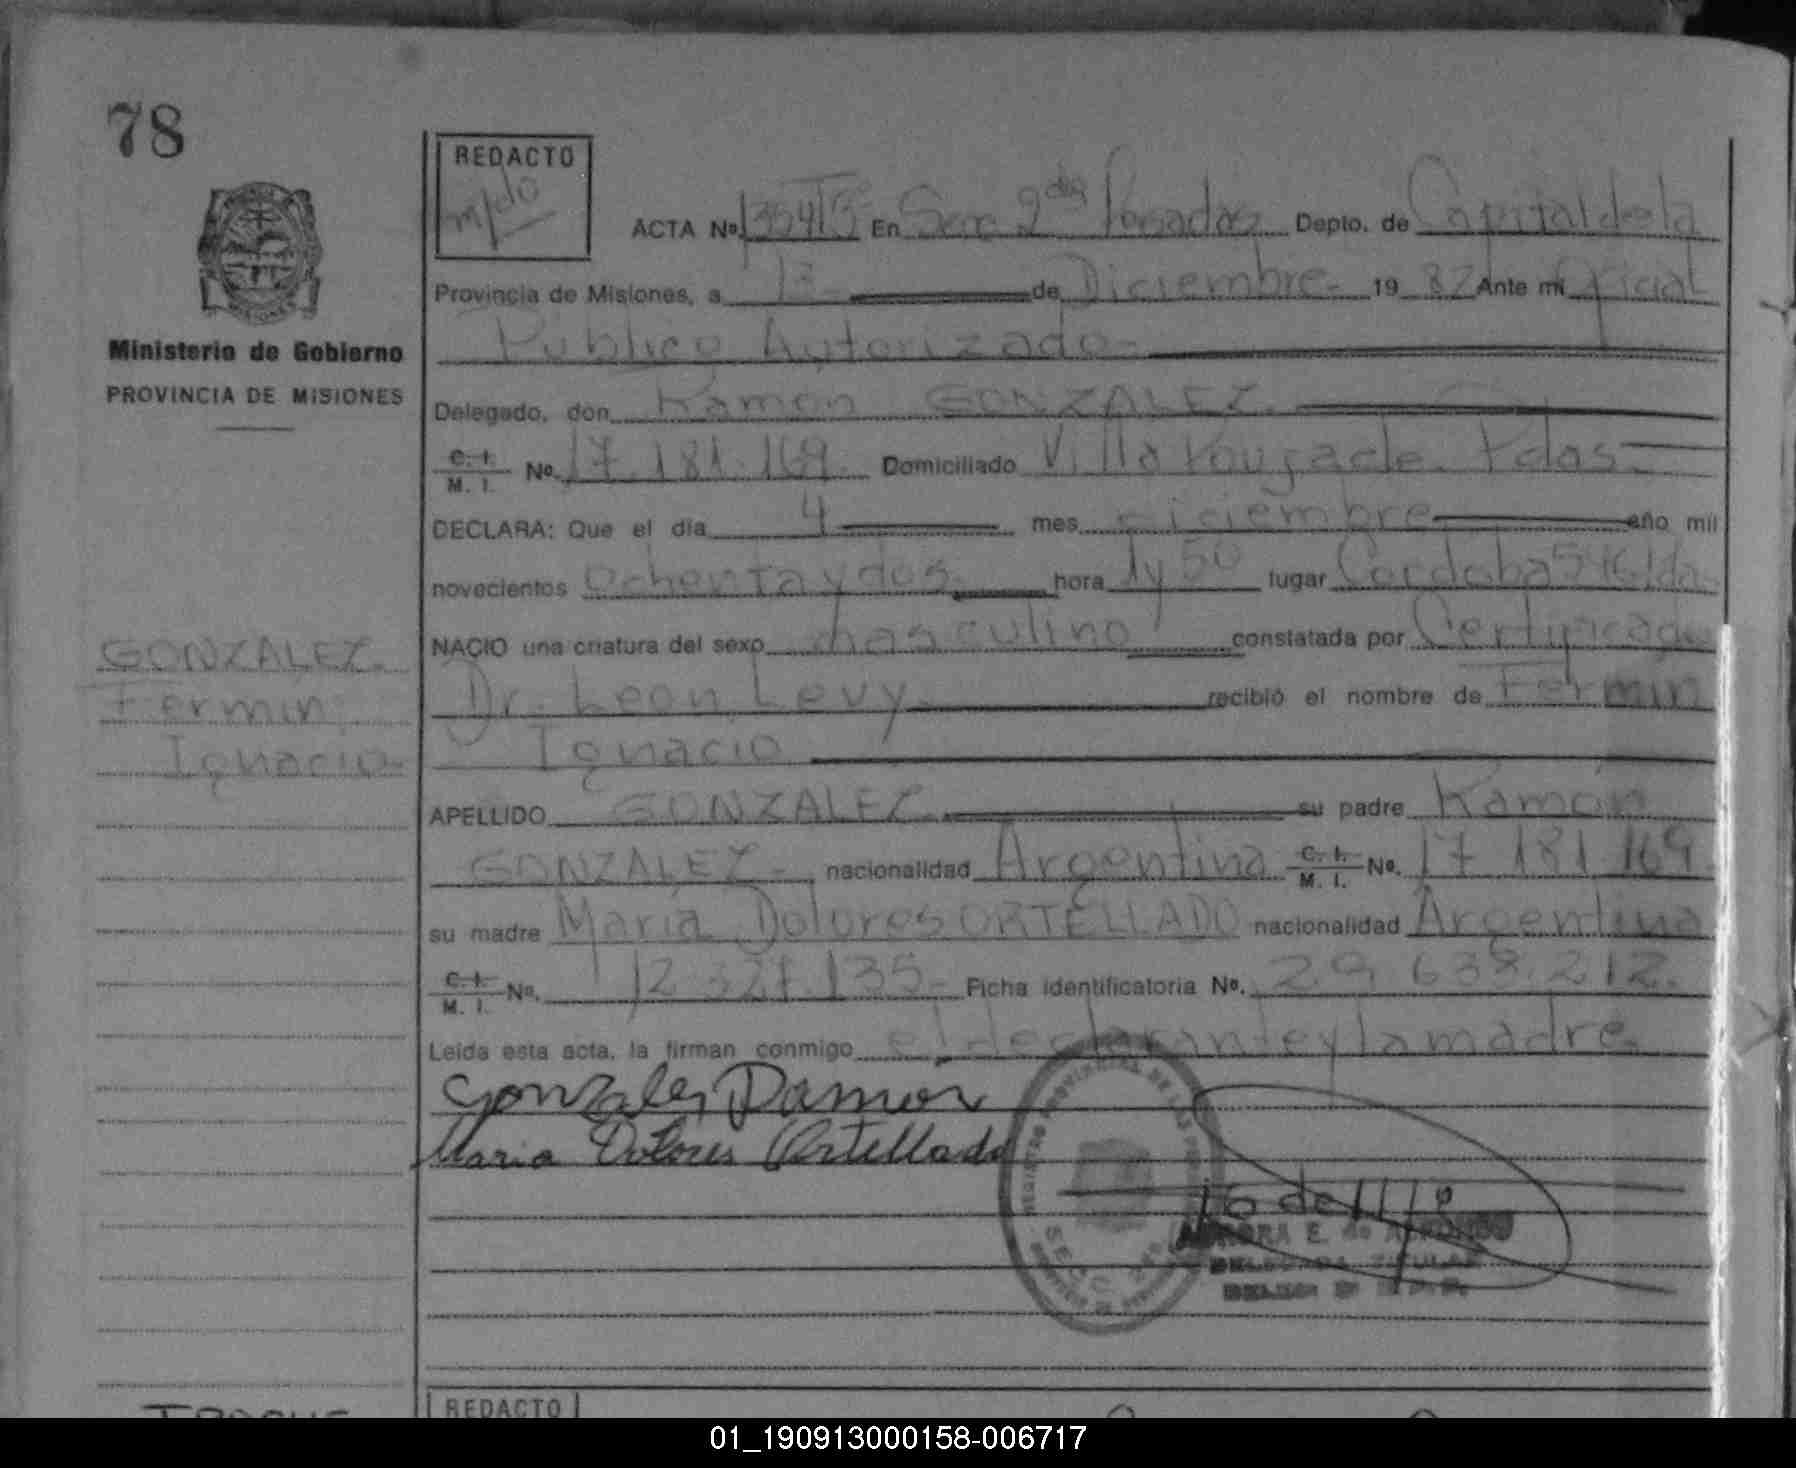 78
REDACTO
m/do
ACTA Nº 3541 Tº En Secc 2da Posadas Depto. de Capital de la
Provincia de Misiones, a 13 de Diciembre- 19 82 Ante mi Oficial
Ministerio de Gobierno
PROVINCIA DE MISIONES
Publico Autorizado-
Delegado, don Ramon GONZALEZ.
C. I. M. I. Nº 17.181.169. Domiciliado Villa Poujade. Pdas.-
DECLARA: Que el día 4 mes diciembre año mil
novecientos ochenta y dos. hora 1 y 50 lugar Cordoba 546 Pdas
NACIO una criatura del sexo masculino constatada por Certificado
GONZALEZ.
Fermin
Ignacio-
Dr. Leon Levy. recibió el nombre de Fermin
Ignacio
APELLIDO GONZALEZ. su padre Ramón
GONZALEZ- nacionalidad Argentina C. I. M. I. Nº. 17 181 169.
su madre María Dolores ORTELLADO nacionalidad Argentina
C. I. M. I. Nº. 12.327.135- Ficha identificatoria Nº. 29.638.212.
Leída esta acta, la firman conmigo el declarante y la madre.
Gonzales Ramon
Maria Dolores Ortellado
REGISTRO PROVINCIAL DE LAS PERSONAS
SECC. 2da
DELEGADA TITULAR
REDACTO
01_190913000158-006717